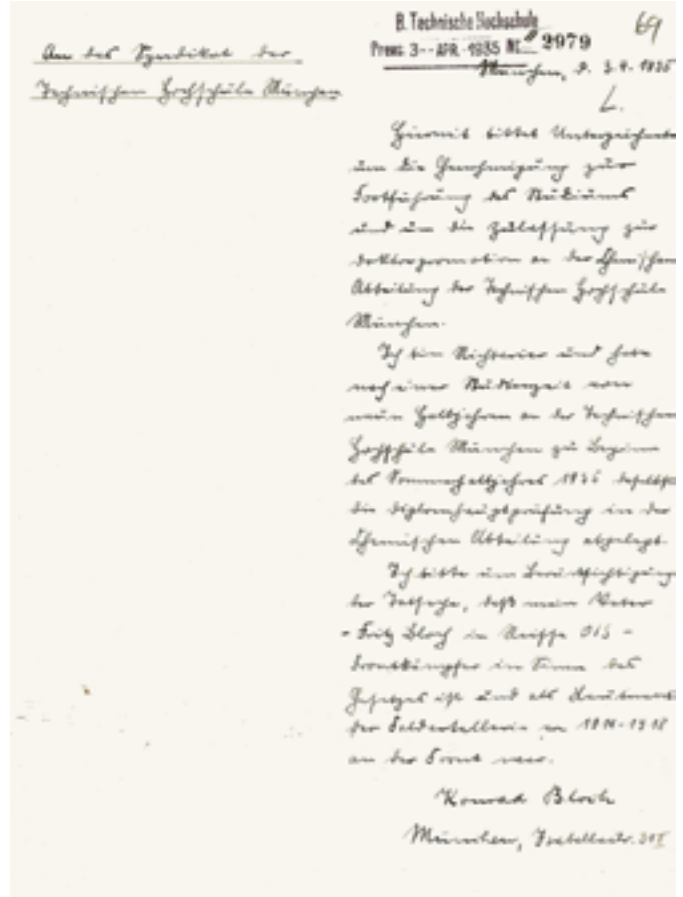 An das Syndikat der
Technischen Hochschule München
B. Technische Hochschule
Präs. 3--APR.-1935 Nr. 2979
69
München, d. 3.4.1935
L.
Hiermit bittet Unterzeichneter
um die Genehmigung zur
Fortführung des Studiums
und um die Zulassung zur
Doktorpromotion an der Chemischen
Abteilung der Technischen Hochschule
München.
Ich bin Nichtarier und habe
nach einer Studienzeit von
neun Halbjahren an der Technischen
Hochschule München zu Beginn
des Sommerhalbjahres daselbst
die Diplomhauptprüfung in der
Chemischen Abteilung abgelegt.
Ich bitte um Berücksichtigung
der Tatsache, daß mein Vater
- Fritz Bloch in Neisse O/S -
Frontkämpfer im Sinne des
Gesetzes ist und als Leutnant
der Feldartillerie 1918
an der Front war.
Konrad Bloch
München,